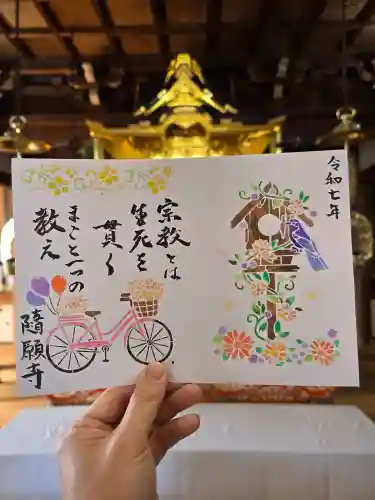 令和七年
宗教とは
生死を
貫く
まことの一つの
教え
随願寺